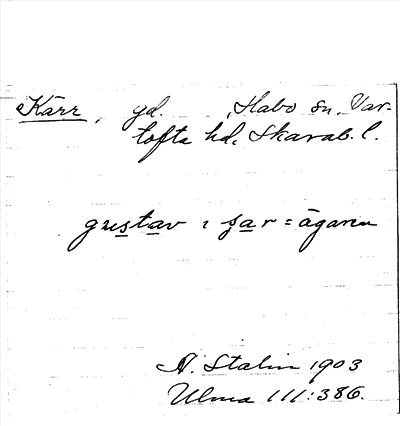 Kärr, gd. , Habo sn. Var-
tofta hd. Skarab. l.
gustav i şar = ägaren
A. Stalin 1903
Ulma 111:386.